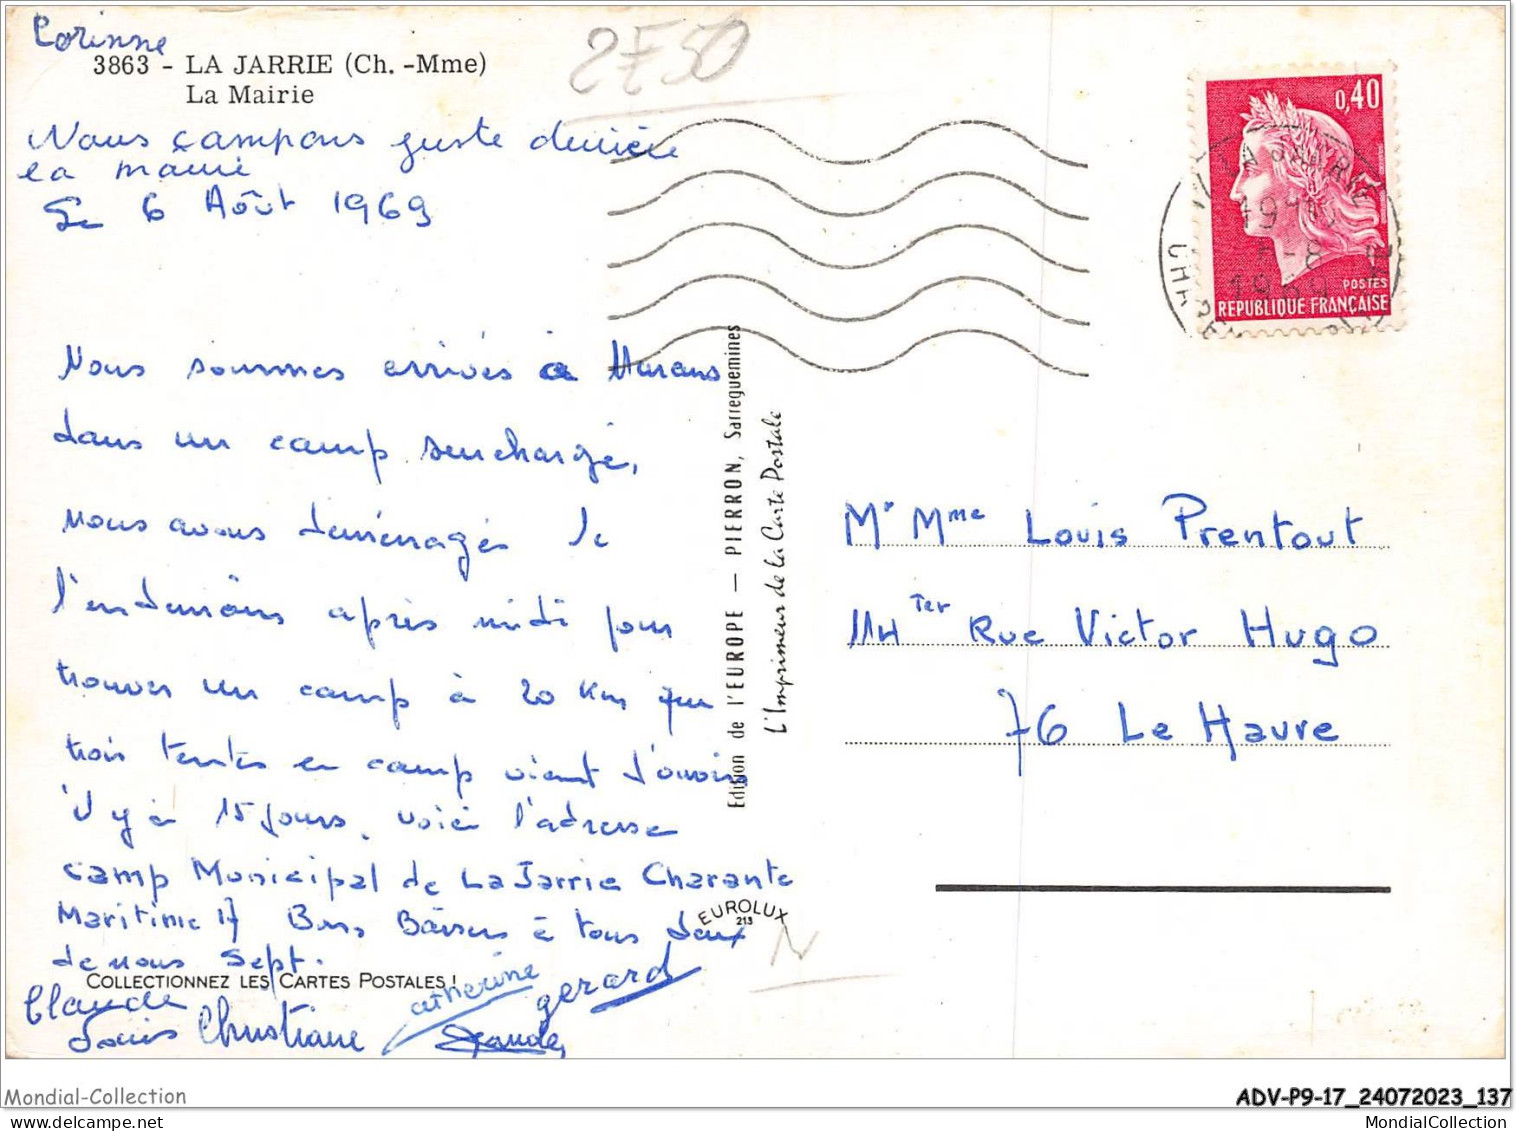 Corinne
3863 - LA JARRIE (Ch. -Mme)
La Mairie
2F50
Nous campons juste derrière
la mairie
Le 6 Août 1969
Nous sommes arrivés à Marans
dans un camp surchargé,
nous avons déménagés le
l'endemains après midi pour
trouver un camp à 20 Km que
trois tentes en camp vient d'ouvrir
il y a 15 jours, voici l'adresse
camp Municipal de La Jarrie Charante
Maritime 17 Bons Baisers à tous deux
de nous sept.
COLLECTIONNEZ LES CARTES POSTALES !
Claude
Louis Christiane Catherine gerard
Edition de l'EUROPE — PIERRON, Sarreguemines
L'Imprimeur de la Carte Postale
EUROLUX
213
0,40
POSTES
REPUBLIQUE FRANÇAISE
1969
Mr Mme Louis Prentout
114 Ter Rue Victor Hugo
76 Le Havre
Mondial-Collection
ADV-P9-17_24072023_137
mondialcollection.com
MondialCollection